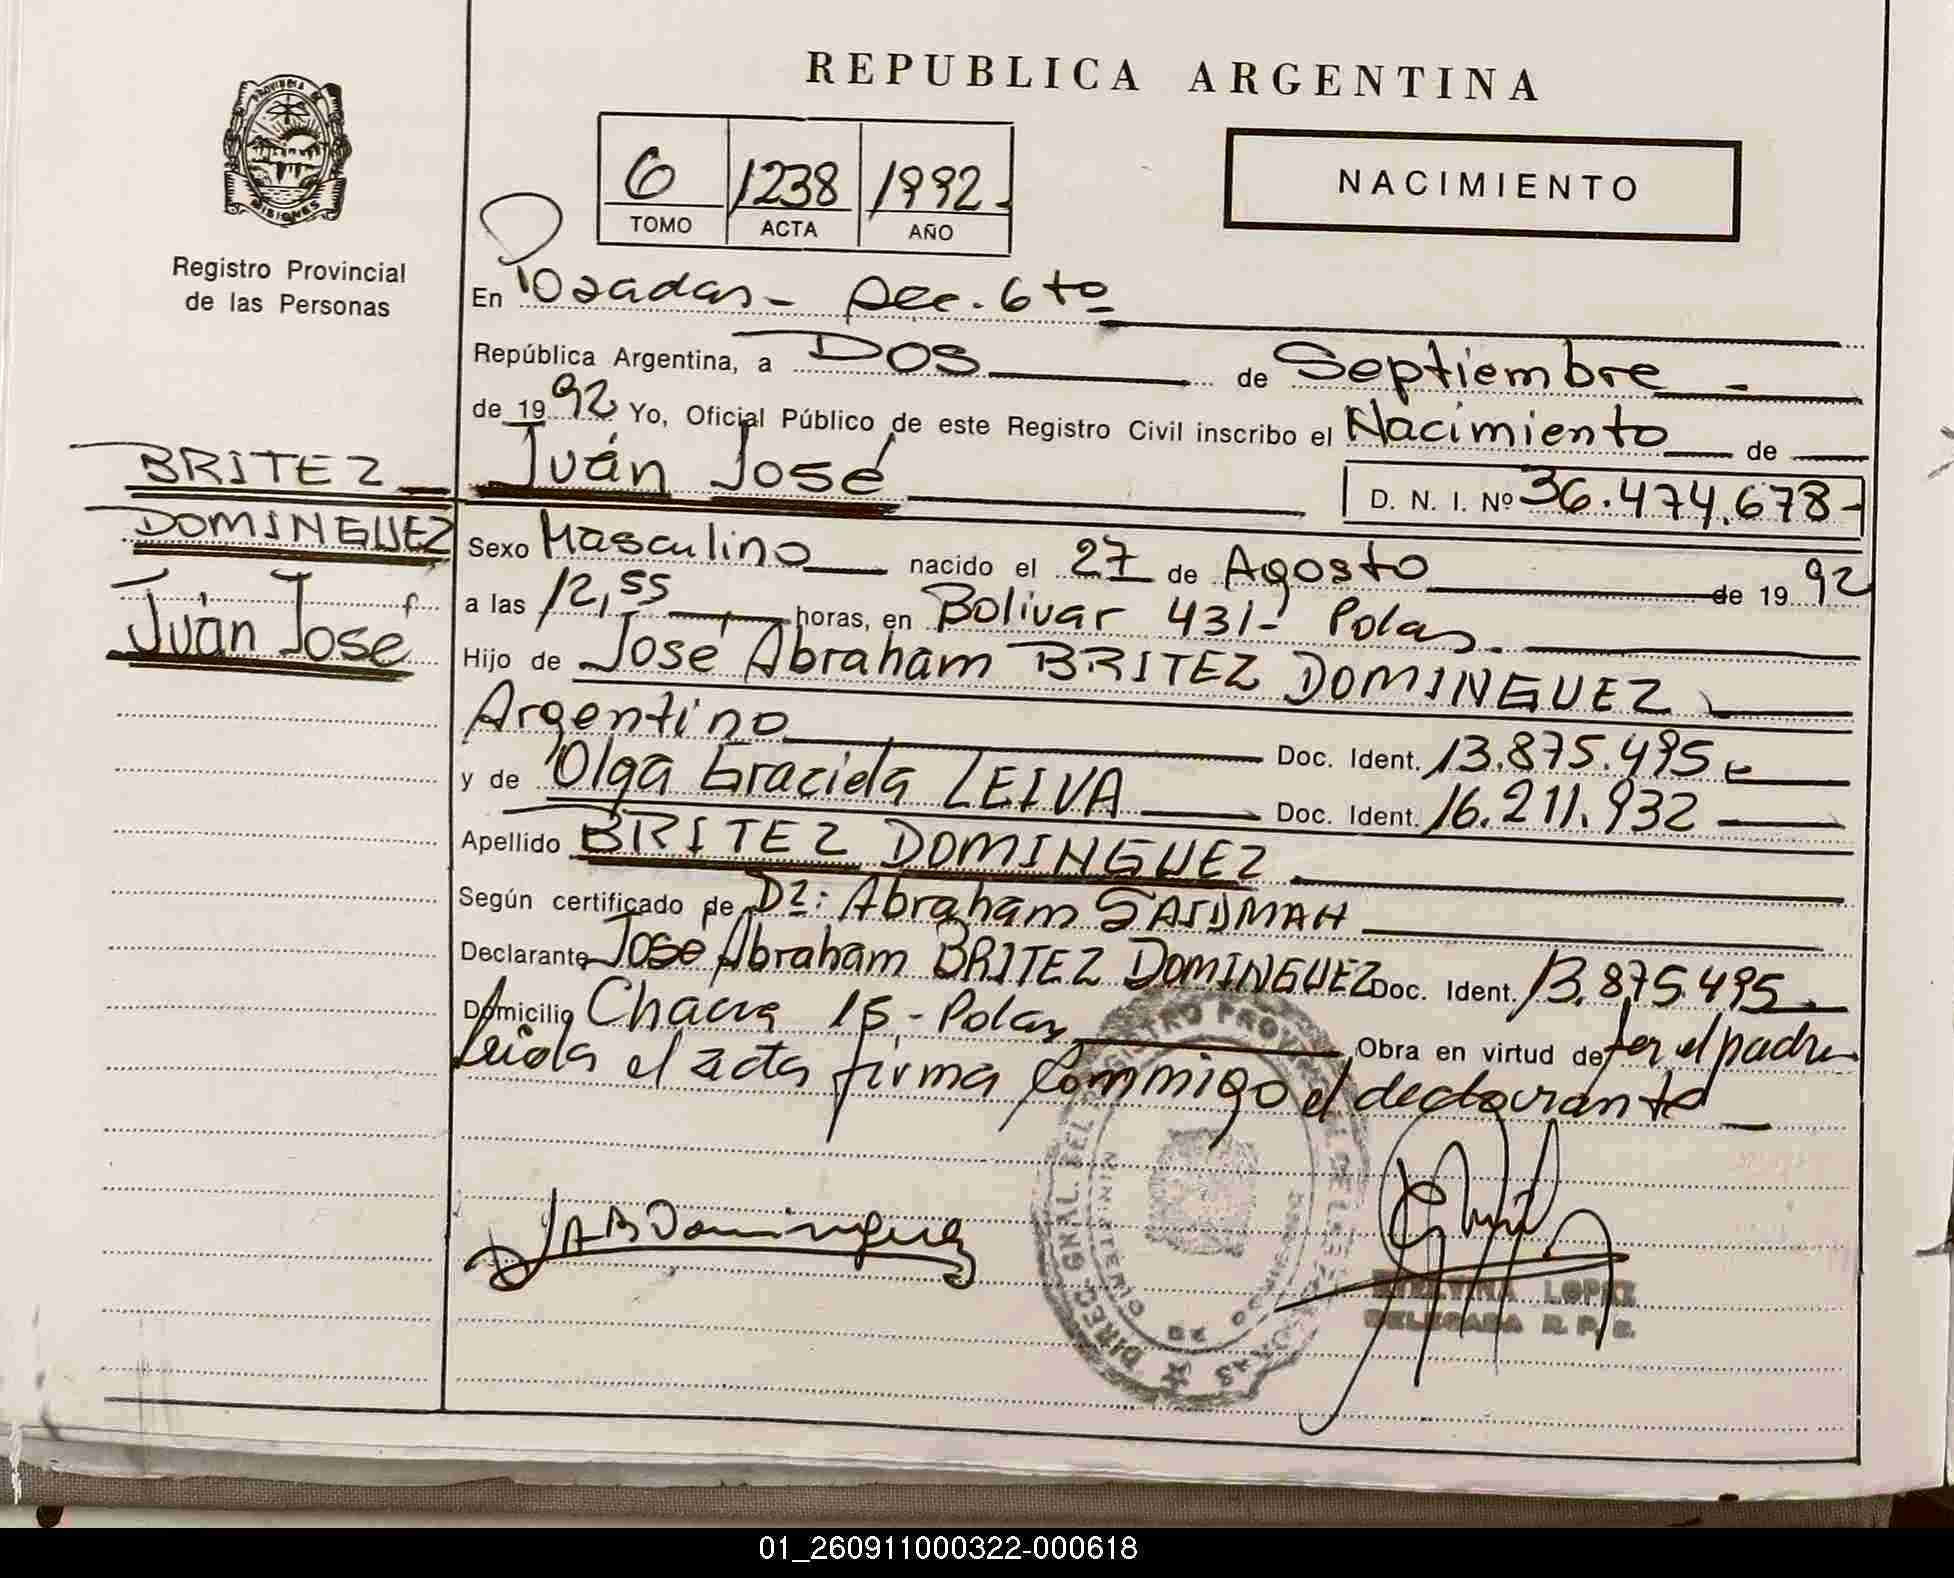 REPUBLICA ARGENTINA
PROVINCIA DE
MISIONES
Registro Provincial
de las Personas
6 1238 1992-
TOMO ACTA AÑO
NACIMIENTO
En Posadas - Sec. 6to
República Argentina, a DOS de Septiembre -
de 1992 Yo, Oficial Público de este Registro Civil inscribo el Nacimiento de
BRITEZ
Juán José
D. N. I. Nº 36.474.678-
DOMINGUEZ
Sexo Masculino nacido el 27 de Agosto de 1992
Juán José
a las 12,55 horas, en Bolivar 431- Pdas.
Hijo de José Abraham BRITEZ DOMINGUEZ
Argentino Doc. Ident. 13.875.495
y de Olga Graciela LEIVA Doc. Ident. 16.211.932
Apellido BRITEZ DOMINGUEZ
Según certificado de Dr: Abraham
Declarante José Abraham BRITEZ DOMINGUEZ Doc. Ident. 13.875.495
Domicilio Chacra 15,- Pdas Obra en virtud de ser el padre
Leida el acta firma commigo el declarante
JABDominguez
LOPEZ
DELEGADA R. P.
01_260911000322-000618